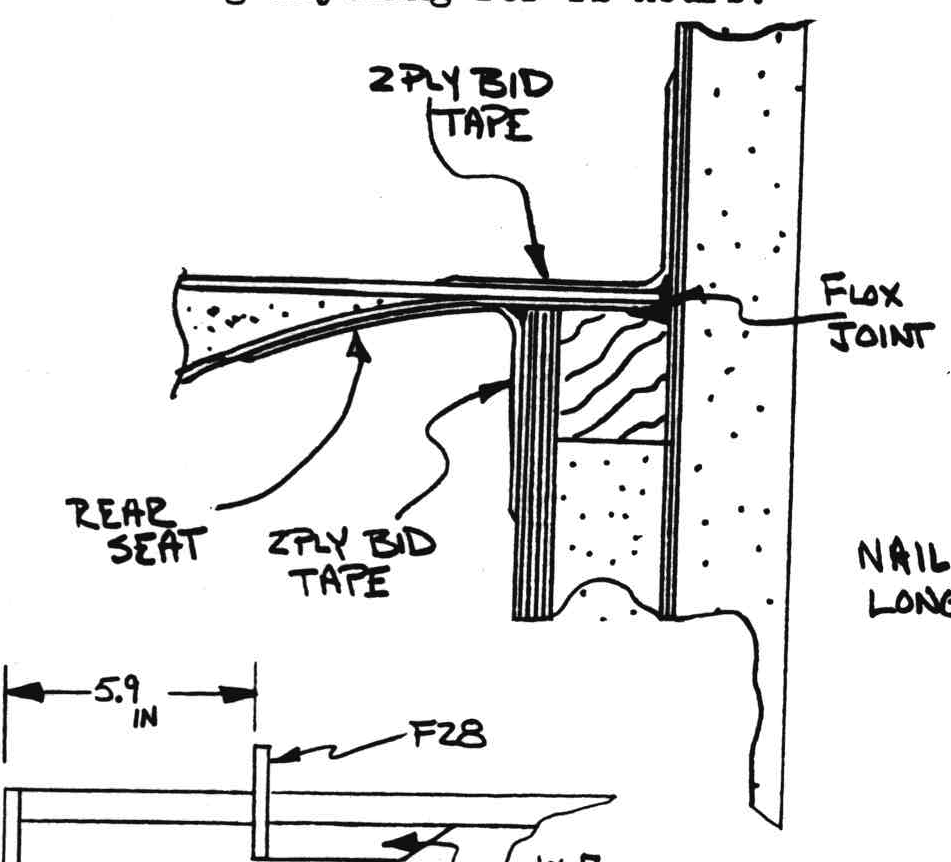 2 PLY BID
TAPE
FLOX
JOINT
REAR
SEAT
2PLY BID
TAPE
NAIL
LONG
5.9
IN
F28